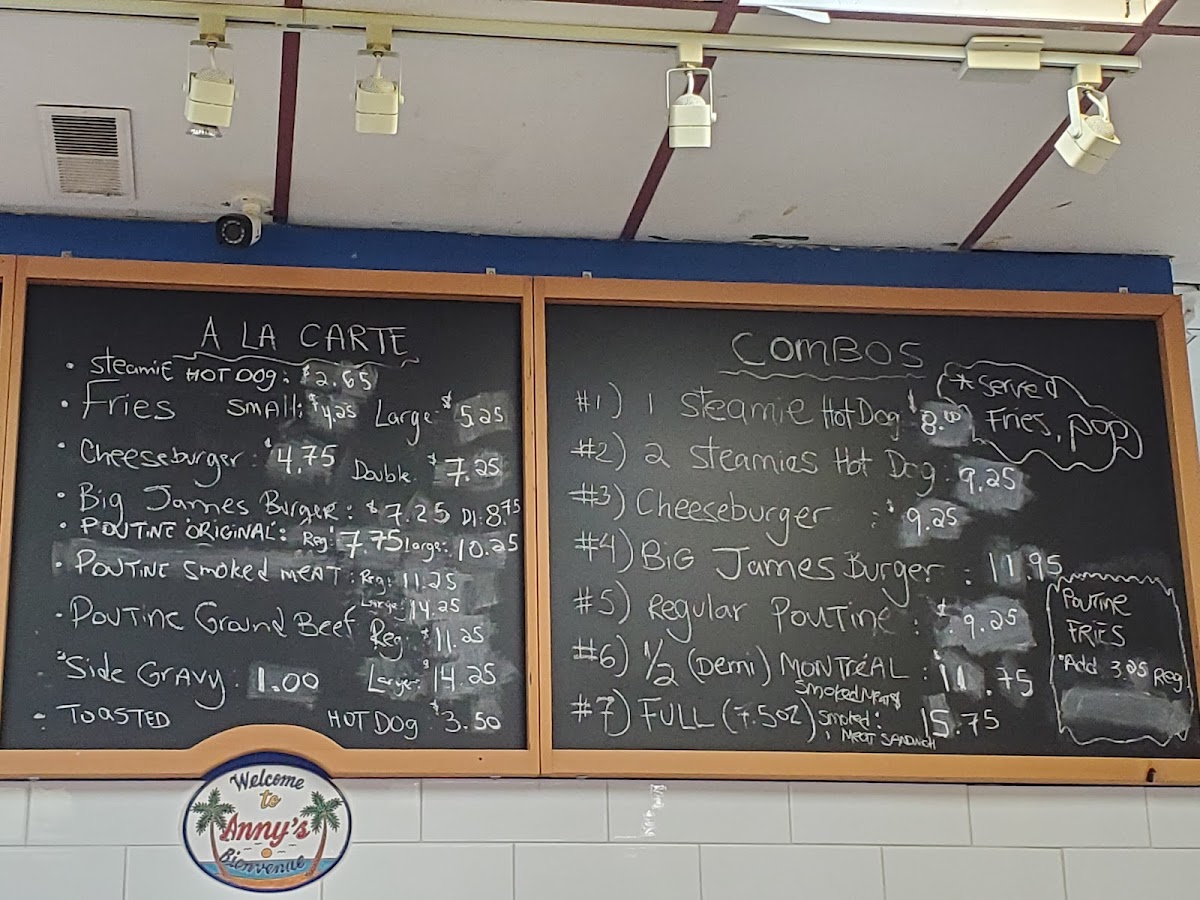 A LA CARTE
• Steamie HOT DOG: $2.65
• Fries SMALL: $4.25 Large $5.25
• Cheeseburger: $4.75 Double $7.25
• Big James Burger: $7.25 Dl: 8.75
• POUTINE ORIGINAL: Reg: 7.75 Large: 10.25
• POUTINE Smoked MEAT: Reg: 11.25
Large: 14.25
• POUTINE Ground Beef Reg $11.25
• Side GRAVY: 1.00 Large: $14.25
• TOASTED HOT DOG $3.50
COMBOS
* Served Fries, pop
#1) 1 Steamie Hot Dog $8.00
#2) 2 Steamies Hot Dog: 9.25
#3) Cheeseburger : $9.25
#4) BIG James Burger : 11.95
#5) Regular Poutine : $9.25
#6) 1/2 (Demi) MONTRÉAL : $11.75
Smoked Meat
#7) FULL (7.5oz) Smoked : 15.75
MEAT SANDWICH
POUTINE
FRIES
*Add 3.25 Reg
Welcome
to
Anny's
Bienvenue